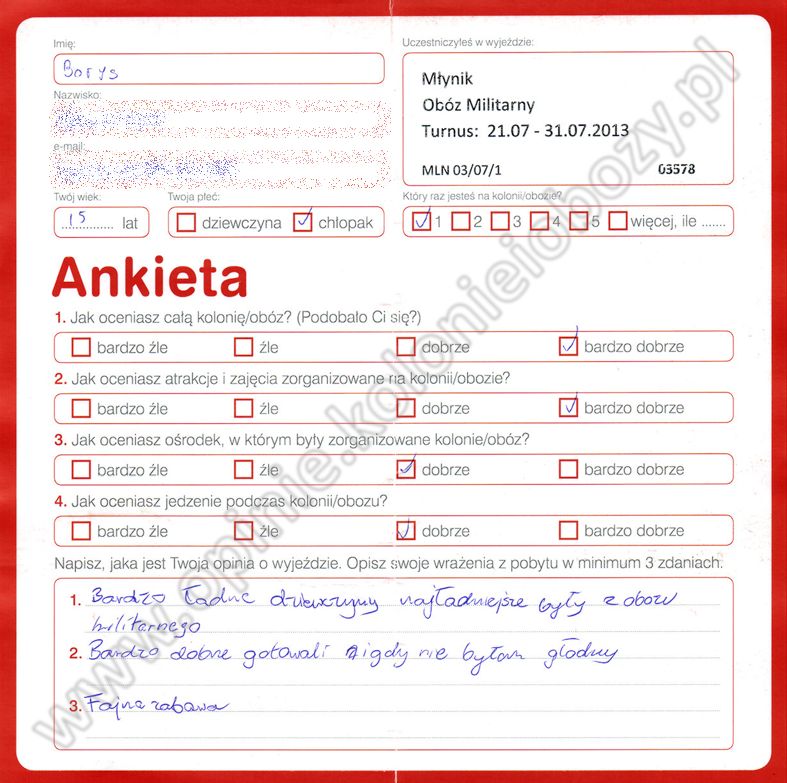 Imię:
Borys
Nazwisko:
e-mail:
Twój wiek:
15 lat
Twoja płeć:
dziewczyna chłopak
Uczestniczyłeś w wyjeździe:
Młynik
Obóz Militarny
Turnus: 21.07 - 31.07.2013
MLN 03/07/1 03578
Który raz jesteś na kolonii/obozie?
1 2 3 4 5 więcej, ile .......
Ankieta
1. Jak oceniasz całą kolonię/obóz? (Podobało Ci się?)
bardzo źle źle dobrze bardzo dobrze
2. Jak oceniasz atrakcje i zajęcia zorganizowane na kolonii/obozie?
bardzo źle źle dobrze bardzo dobrze
3. Jak oceniasz ośrodek, w którym były zorganizowane kolonie/obóz?
bardzo źle źle dobrze bardzo dobrze
4. Jak oceniasz jedzenie podczas kolonii/obozu?
bardzo źle źle dobrze bardzo dobrze
Napisz, jaka jest Twoja opinia o wyjeździe. Opisz swoje wrażenia z pobytu w minimum 3 zdaniach.
1. Bardzo ładne dziewczyny najładniejsze były z obozu
militarnego
2. Bardzo dobrze gotowali nigdy nie byłam głodny
3. Fajna zabawa
www.opinie.kolonieiobozy.pl